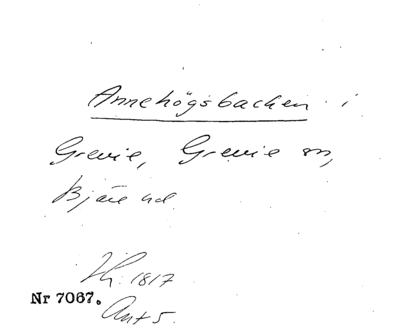 Annehögsbacken i
Grevie, Grevie sn,
Bjäre hd
1817
Nr 7067.
Ant 5.